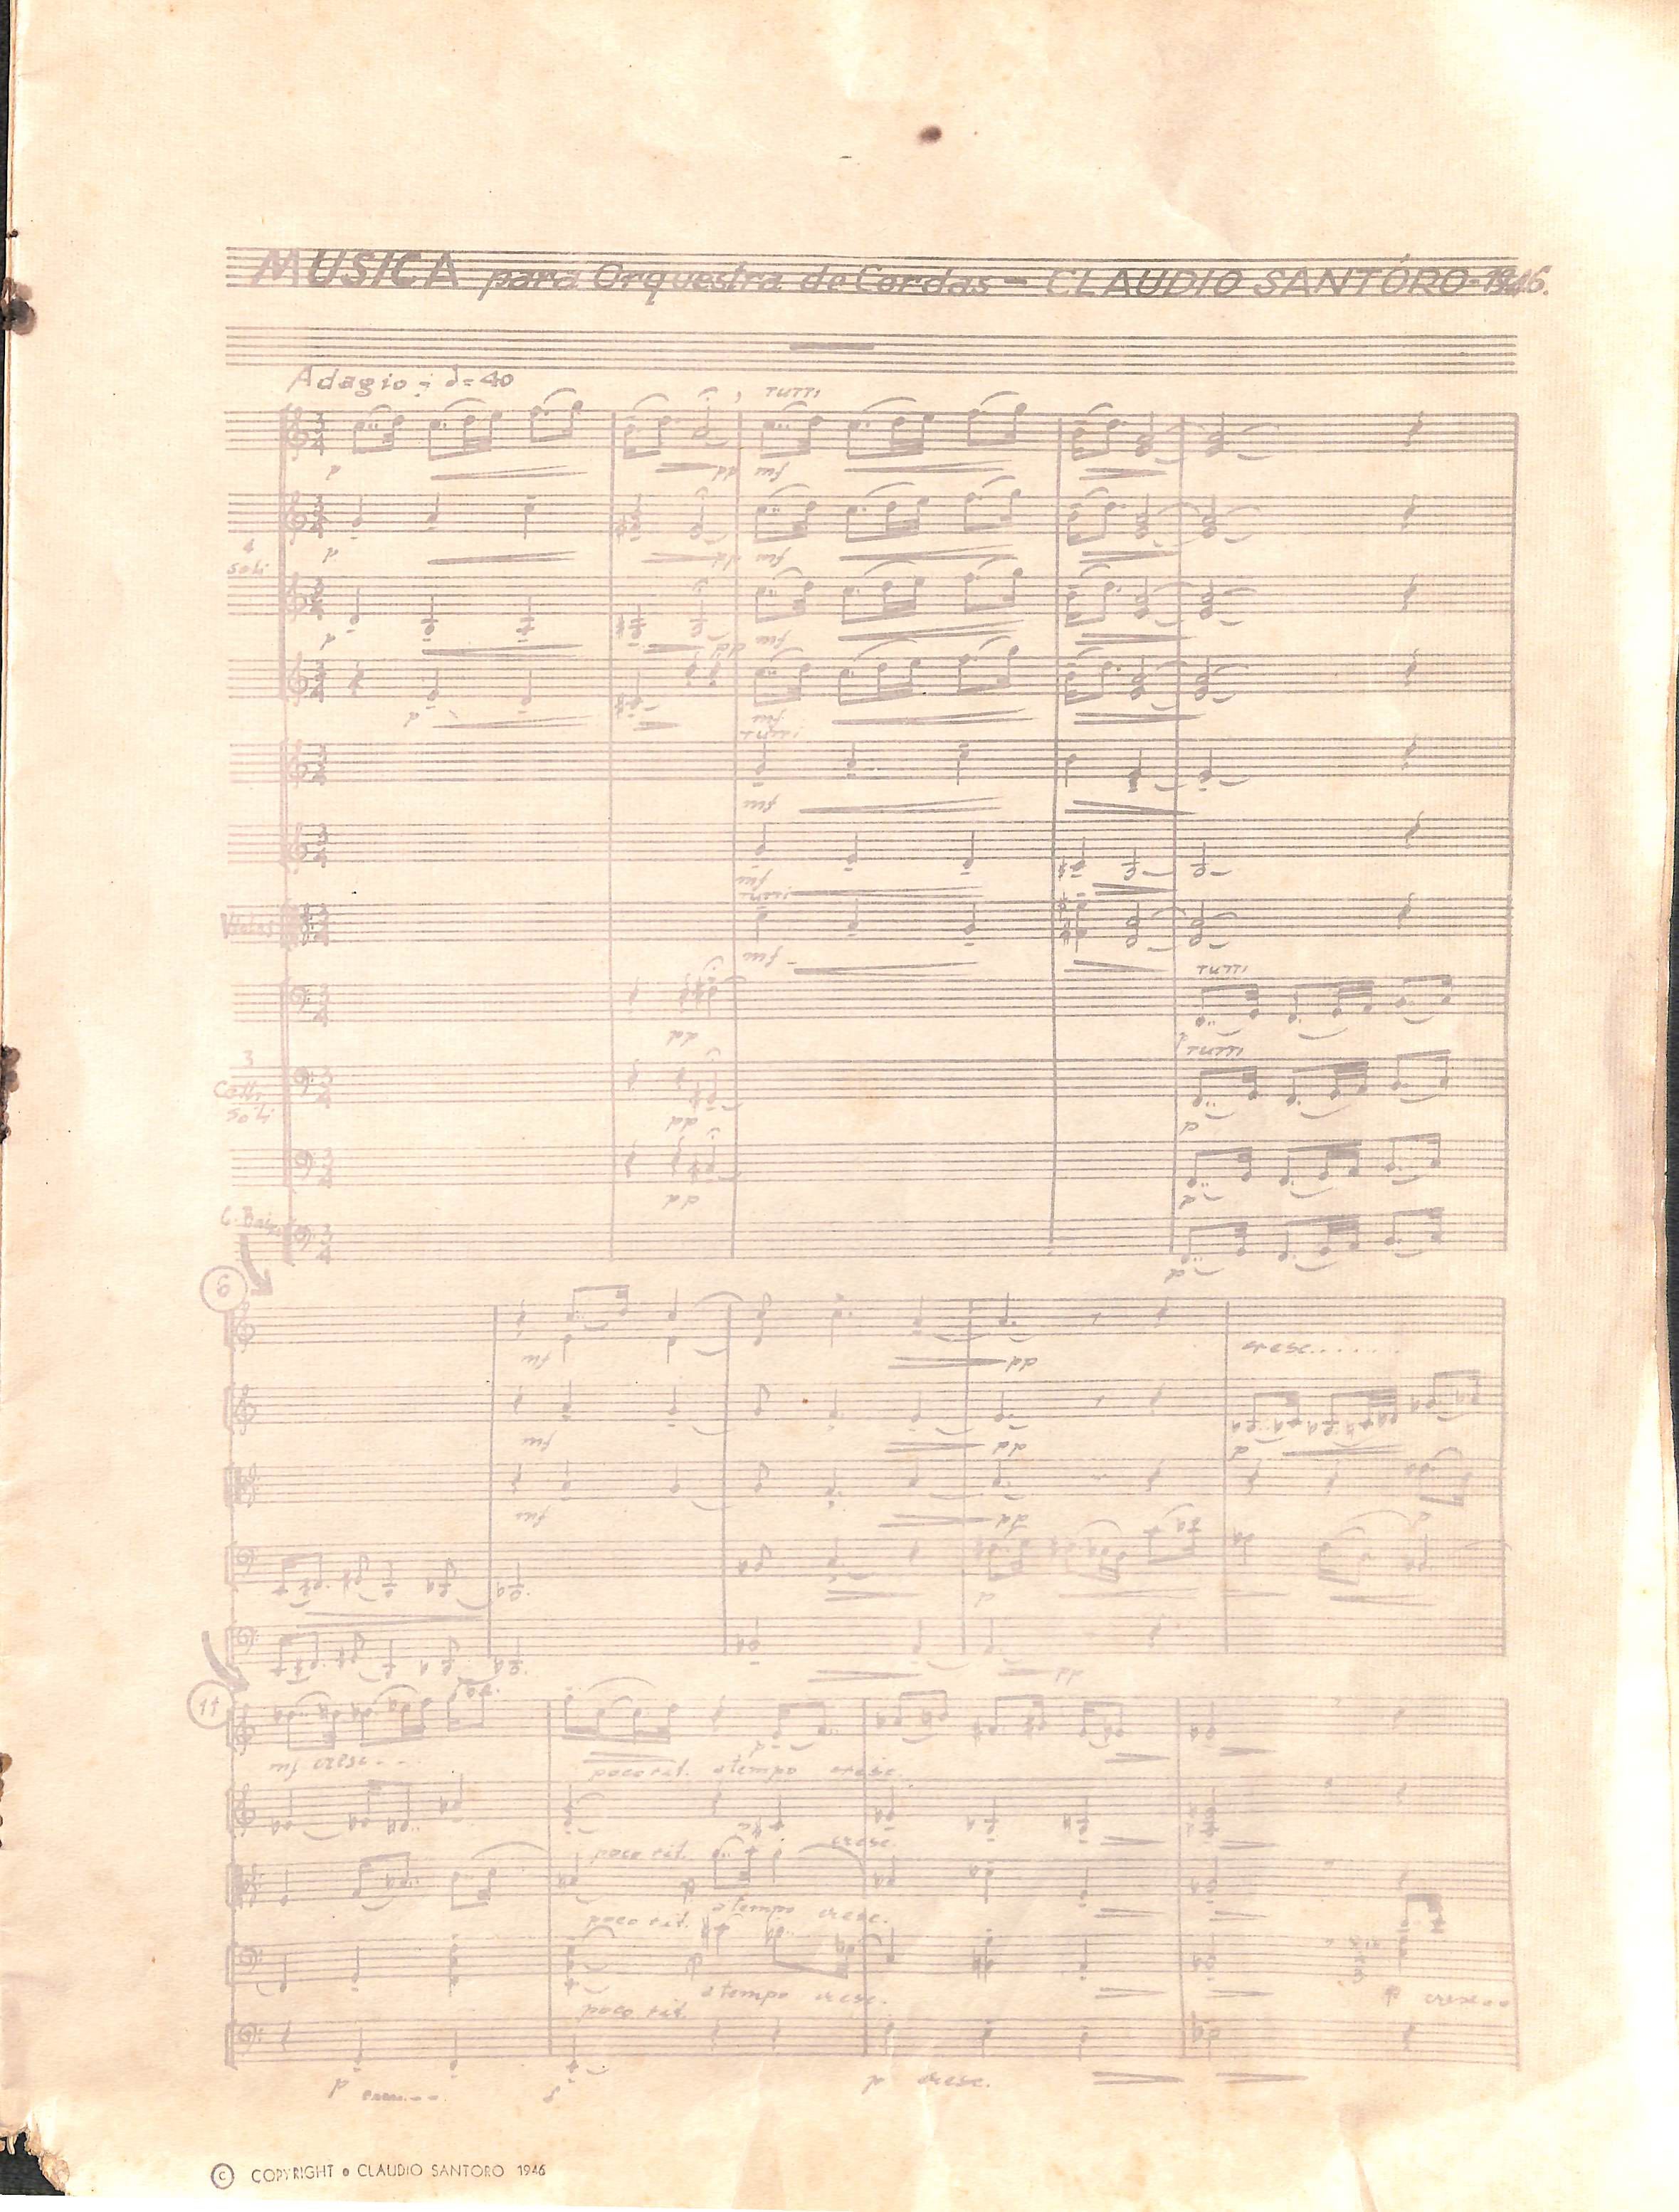 MUSICA para Orquestra de Cordas - CLAUDIO SANTÓRO - 1946.
Adagio ; ♩= 40
TUTTI
4
soli
unis.
unis.
Violas
TUTTI
TUTTI
3
Celli
soli
C. Baixo
6
mf
pp
cresc......
mf
pp
mf
pp
p
pp
11
mf cresc...
poco rit. a tempo cresc.
poco rit. cresc.
poco rit. a tempo cresc.
poco rit. a tempo cresc. p cresc...
p p cresc.
© COPYRIGHT • CLAUDIO SANTORO 1946